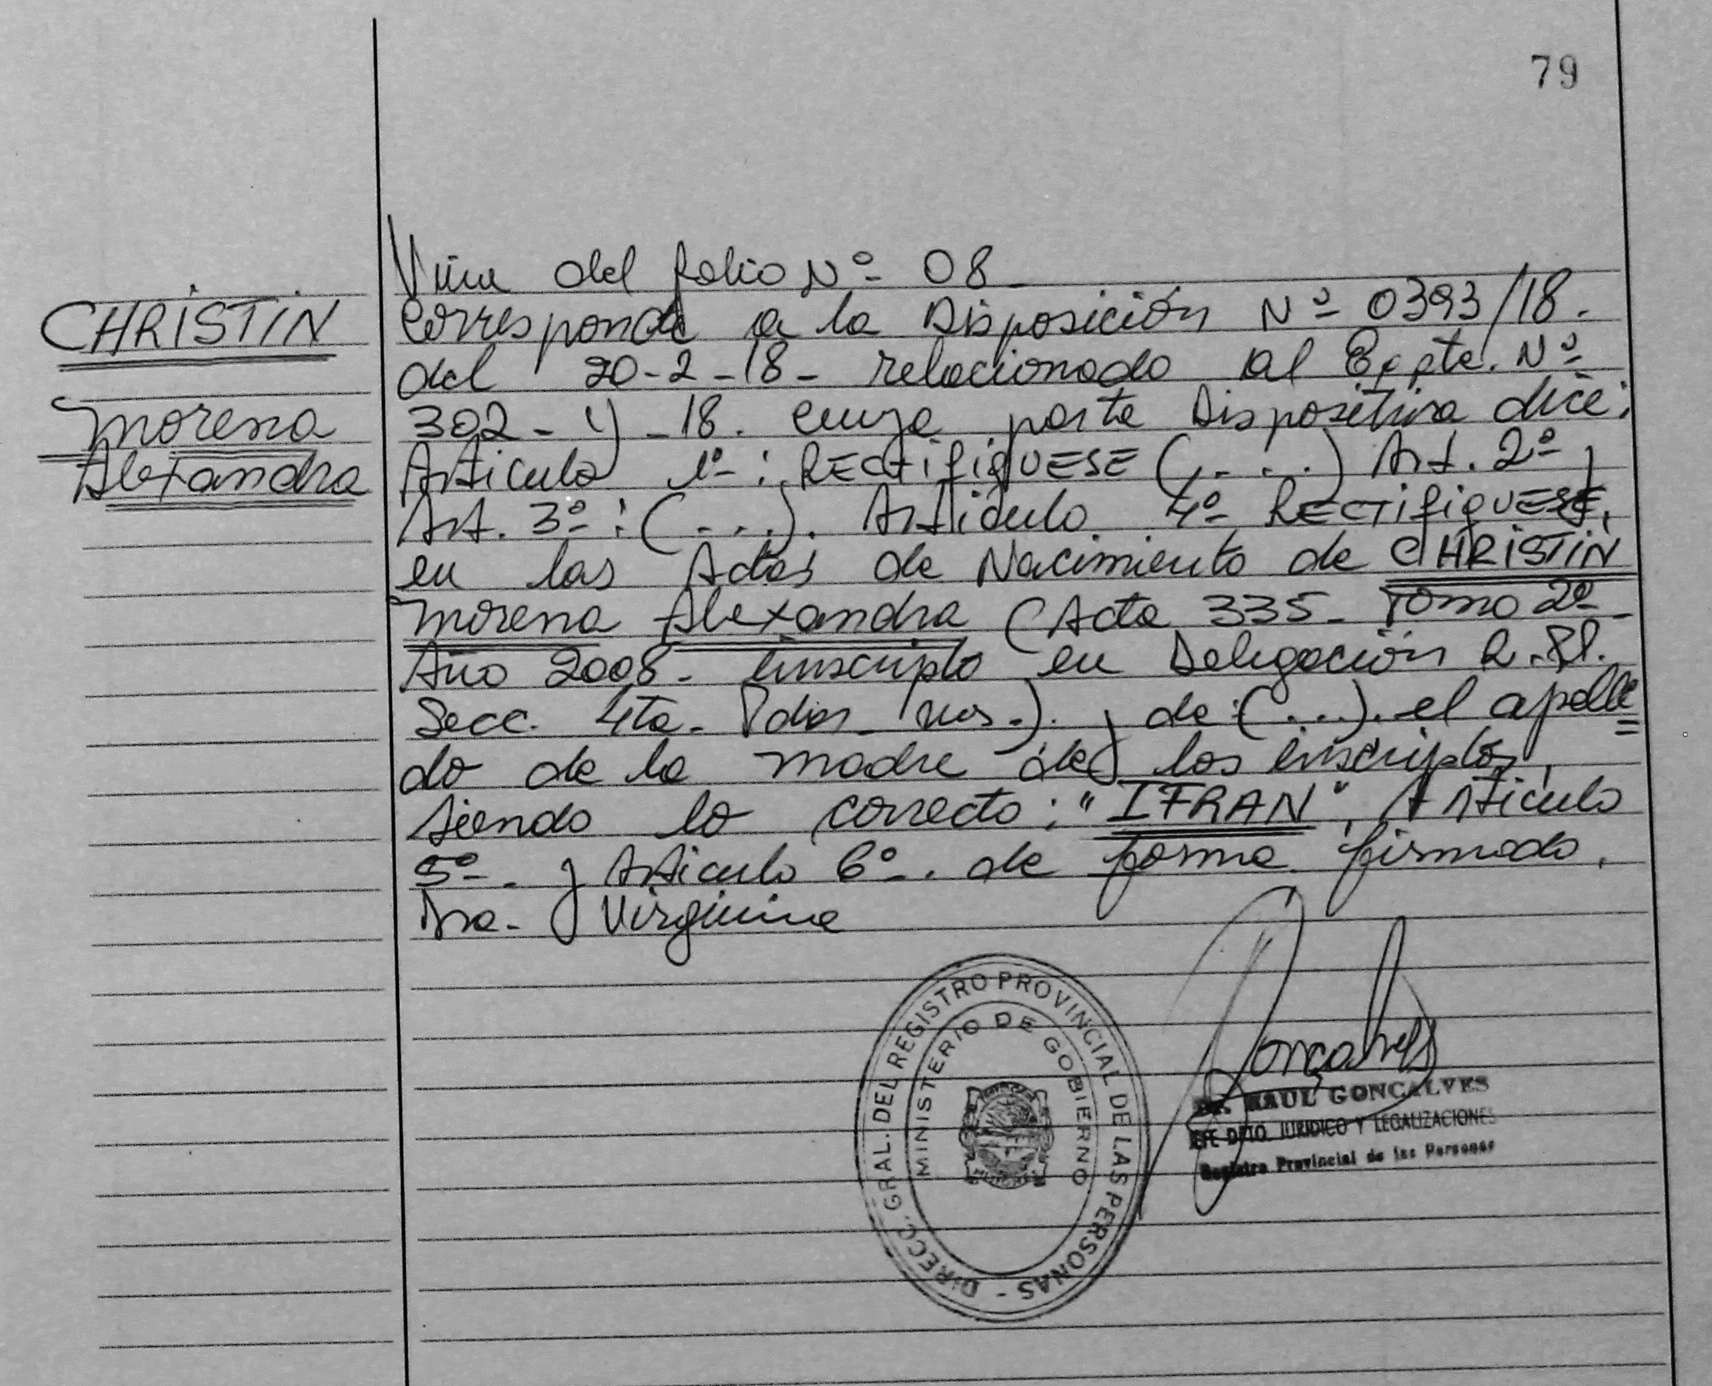 79
CHRISTIN
Morena
Alexandra
Viene del folio Nº 08
Corresponde a la Disposición Nº 0393/18.
del 20-2-18- relacionado al Expte. Nº
302-Y-18. cuya parte Dispositiva dice:
Articulo 1º: RECTIFIQUESE (....) Art. 2º y
Art. 3º: (...). Articulo 4º RECTIFIQUESE,
en las Actas de Nacimiento de CHRISTIN
Morena Alexandra (Acta 335- Tomo 2º-
Año 2008- inscripto en Delegación
Secc. 4ta- Pdas. Mnes.). y de: (...). el apelli
do de la madre de los inscriptos,
siendo lo correcto: "IFRAN". Articulo
5º- y Articulo 6º-. de forma firmado.
Dra. Virginia
DIRECC. GRAL. DEL REGISTRO PROVINCIAL DE LAS PERSONAS -
MINISTERIO DE GOBIERNO
Goncalves
Dr. RAUL GONCALVES
JEFE DPTO. JURIDICO Y LEGALIZACIONES
Registro Provincial de las Personas